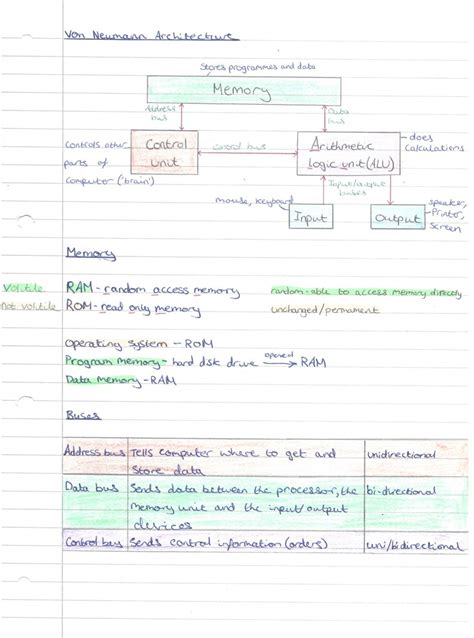 Von Neumann Architecture
Stores programmes and data
Memory
Address bus
Data bus
Controls other parts of computer ('brain')
Control unit
control bus
Arithmetic logic unit (ALU)
- does calculations
Input/output buses
mouse, keyboard
Input
Output
speaker, printer, screen
Memory
Volitile RAM - random access memory random - able to access memory directly
not volitile ROM - read only memory unchanged/permanent
Operating system - ROM
Program memory - hard dsk drive opened → RAM
Data memory - RAM
Buses
Address bus Tells computer where to get and store data unidirectional
Data bus Sends data between the processor, the memory unit and the input/output devices bi-directional
Control bus Sends control information (orders) uni/bidirectional